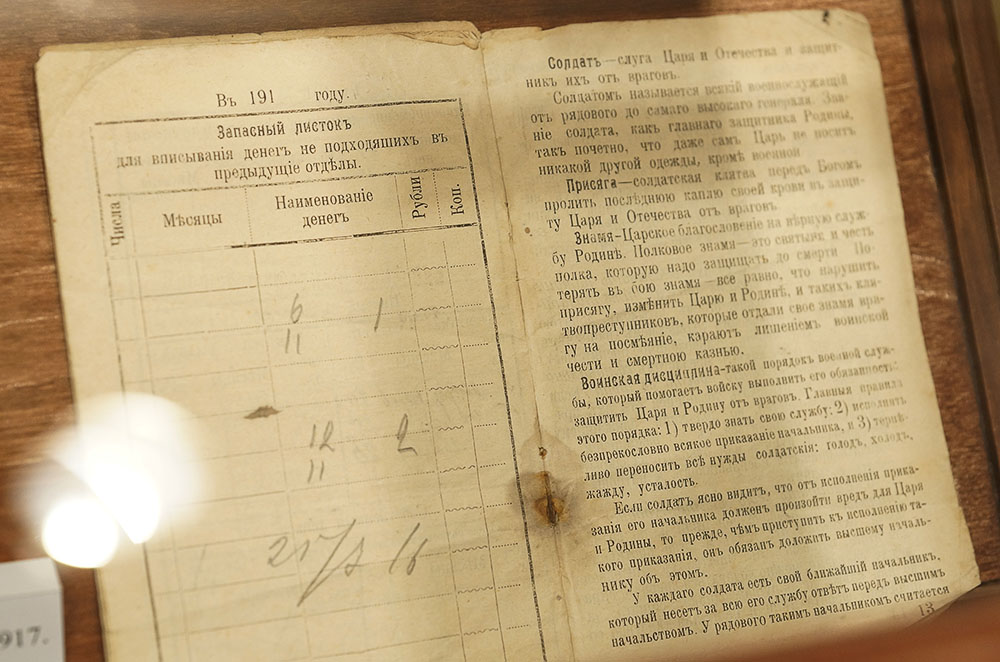 Въ 191 году.
Запасный листокъ
для вписыванія денегъ не подходящихъ въ
предыдущіе отдѣлы.
Числа
Мѣсяцы
Наименованіе
денегъ
Рубли
Коп.
6 1
11
12 2
11
16
Солдатъ—слуга Царя и Отечества и защит-
никъ ихъ отъ враговъ.
Солдатомъ называется всякій военнослужащій
отъ рядового до самаго высокаго генерала. Зва-
ніе солдата, какъ главнаго защитника Родины,
такъ почетно, что даже самъ Царь не носитъ
никакой другой одежды, кромѣ военной
Присяга—солдатская клятва передъ Богомъ
пролить послѣднюю каплю своей крови въ защи-
ту Царя и Отечества отъ враговъ.
Знамя—Царское благословеніе на вѣрную служ-
бу Родинѣ. Полковое знамя—это святыня и честь
полка, которую надо защищать до смерти По-
терять въ бою знамя—все равно, что нарушить
присягу, измѣнить Царю и Родинѣ, и такихъ кля-
твопреступниковъ, которые отдали свое знамя вра-
гу на посмѣяніе, караютъ лишеніемъ воинской
чести и смертною казнью.
Воинская дисциплина-такой порядокъ военной служ-
бы, который помогаетъ войску выполнить его обязанность:
защитить Царя и Родину отъ враговъ. Главныя правила
этого порядка: 1) твердо знать свою службу: 2) исполнять
безпрекословно всякое приказаніе начальника, и 3) терпѣ-
ливо переносить всѣ нужды солдатскія: голодъ, холодъ,
жажду, усталость.
Если солдатъ ясно видитъ, что отъ исполненія прика-
занія его начальника долженъ произойти вредъ для Царя
и Родины, то прежде, чѣмъ приступить къ исполненію та-
кого приказанія, онъ обязанъ доложить высшему началь-
нику объ этомъ.
У каждаго солдата есть свой ближайшій начальникъ,
который несетъ за всю его службу отвѣтъ передъ высшимъ
начальствомъ. У рядового такимъ начальникомъ считается
13
917.